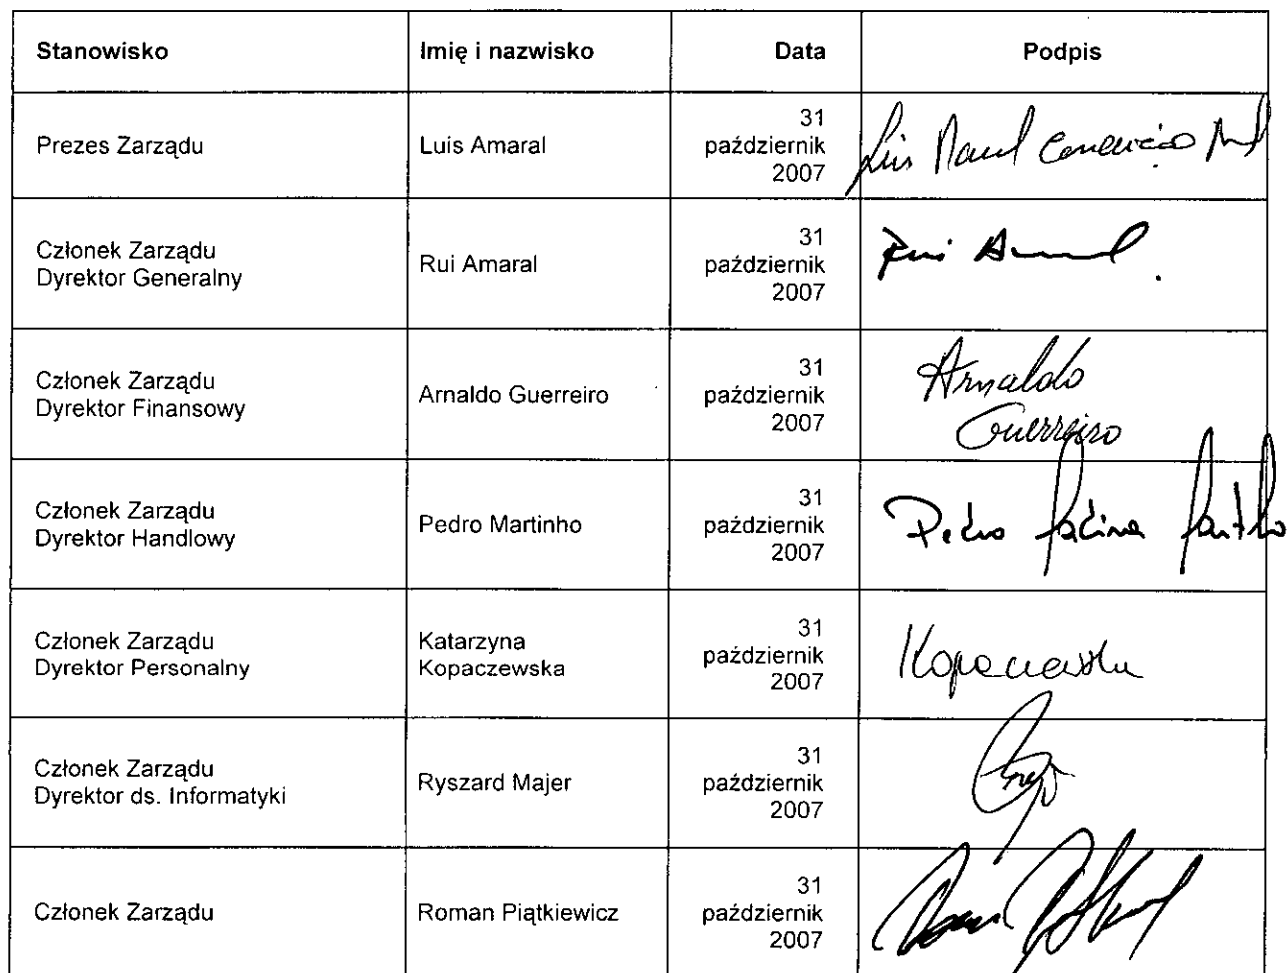 Stanowisko Imię i nazwisko Data Podpis
31
Prezes Zarządu Luis Amaral październik
2007
31
Członek Zarządu
Dyrektor Generalny
Rui Amaral październik Rui
2007
31
Członek Zarządu
Dyrektor Finansowy
Arnaldo Guerreiro październik
2007
Arnaldo
Guerreiro
31
Członek Zarządu
Dyrektor Handlowy
Pedro Martinho październik Pedro
2007
31
Członek Zarządu
Dyrektor Personalny
Katarzyna
Kopaczewska
październik
2007
31
Członek Zarządu
Dyrektor ds. Informatyki
Ryszard Majer październik
2007
31
Członek Zarządu Roman Piątkiewicz październik
2007